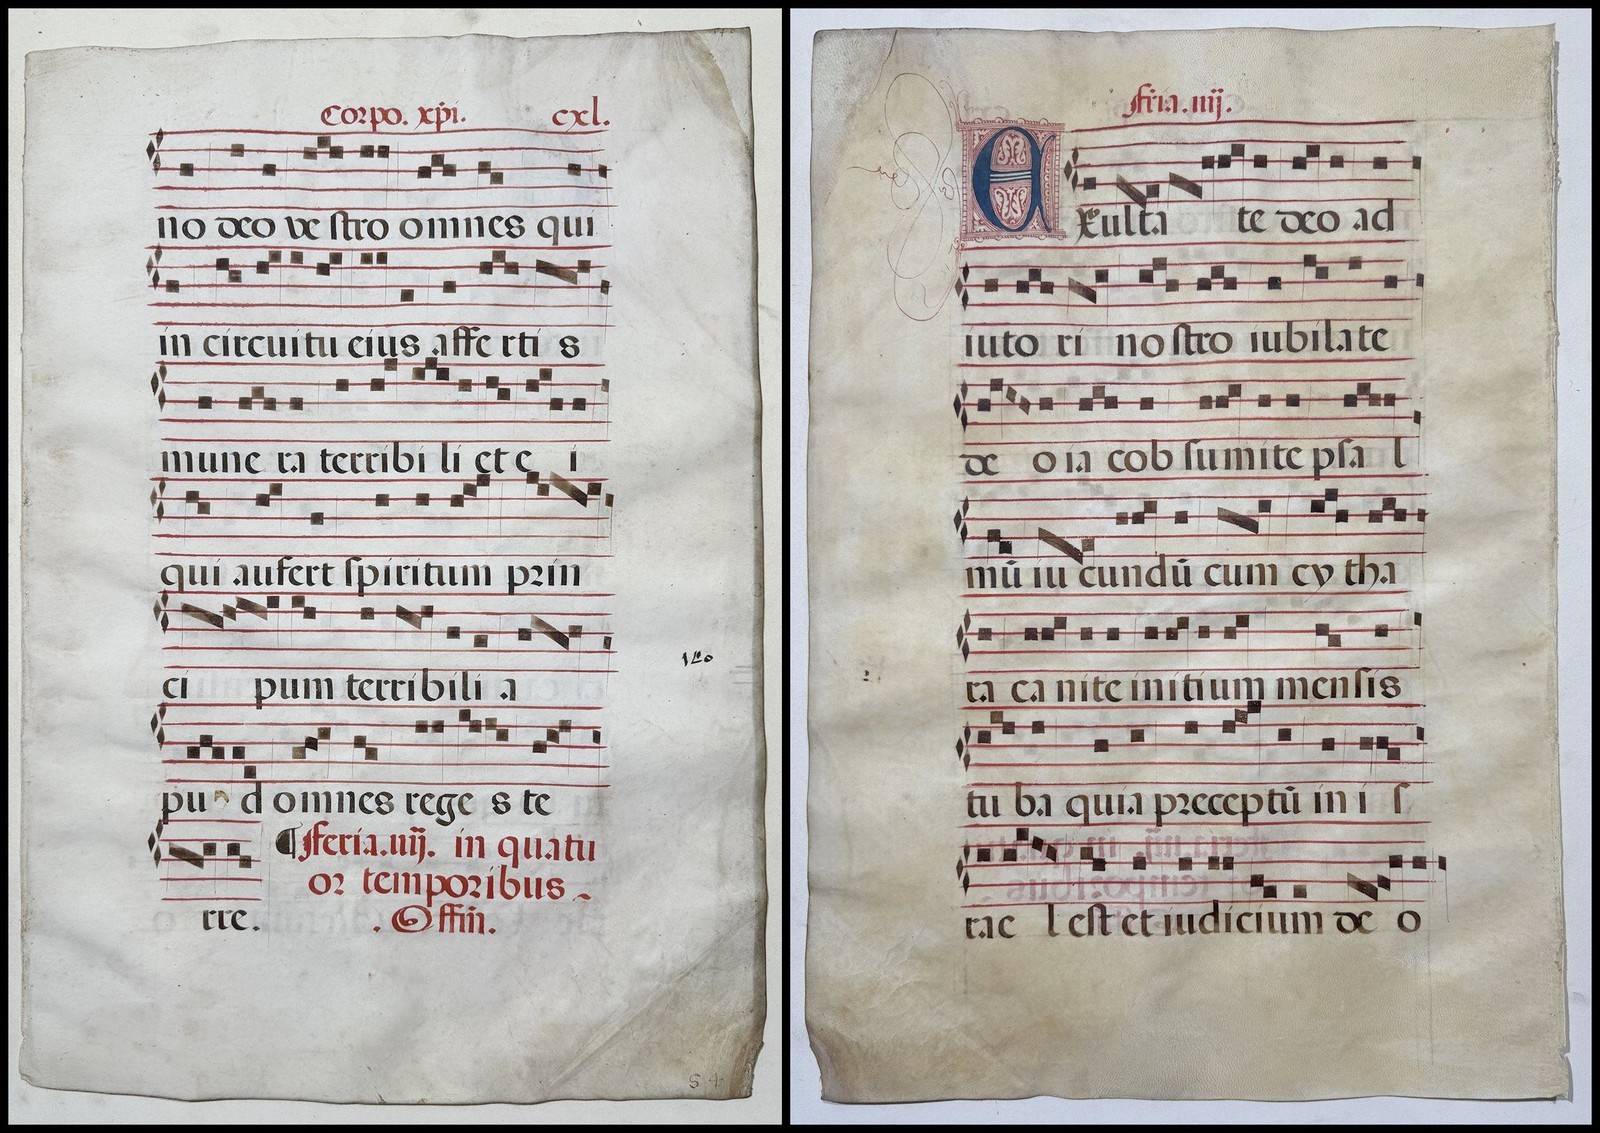 Corpo. xp̄i. cxl.
no deo ve stro omnes qui
in circuitu eius affe rti s
mune ra terribi li et e i
qui aufert spiritum prin
ci pum terribili a
pu d omnes rege s te
¶ feria.iiij. in quatu
or temporibus
rre. . Offm̄.
140
54
fr̄ia.iiij.
Exulta te deo ad
iuto ri no stro iubilate
de o ia cob sumite psa l
mū iu cundū cum cy tha
ra ca nite initium mensis
tu ba quia preceptū in i s
rae l est et iudicium de o